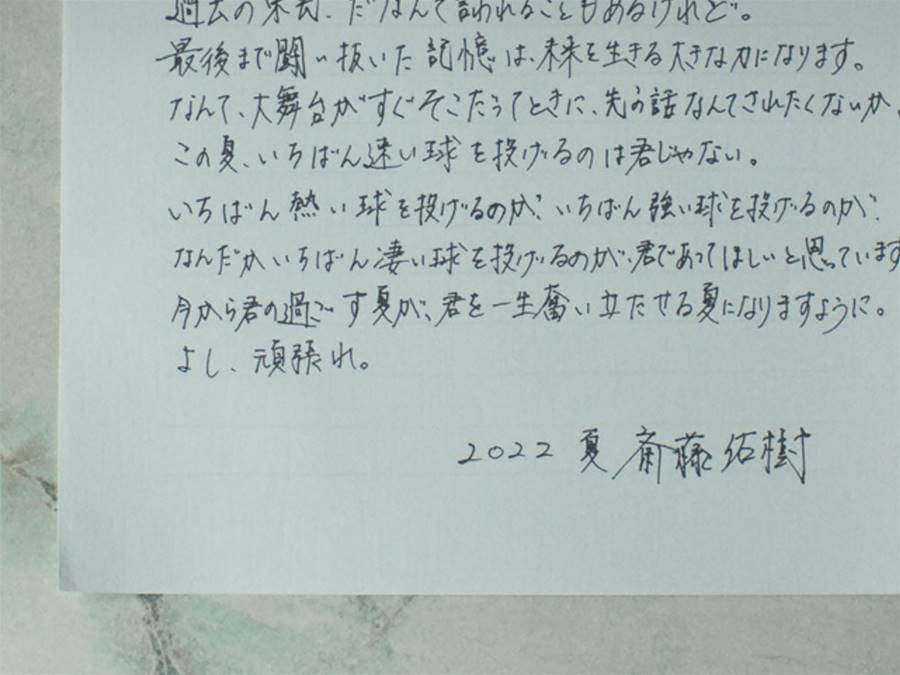 過去の栄光、だなんて言われることもあるけれど。
最後まで闘い抜いた記憶は、未来を生きる大きな力になります。
なんて、大舞台がすぐそこだってときに、先の話なんてされたくないか。
この夏、いちばん速い球を投げるのは君じゃない。
いちばん熱い球を投げるのか、いちばん強い球を投げるのか、
なんだかいちばん凄い球を投げるのが、君であってほしいと思っています
今から君の過ごす夏が、君を一生奮い立たせる夏になりますように。
よし、頑張れ。
2022 夏 斎藤佑樹